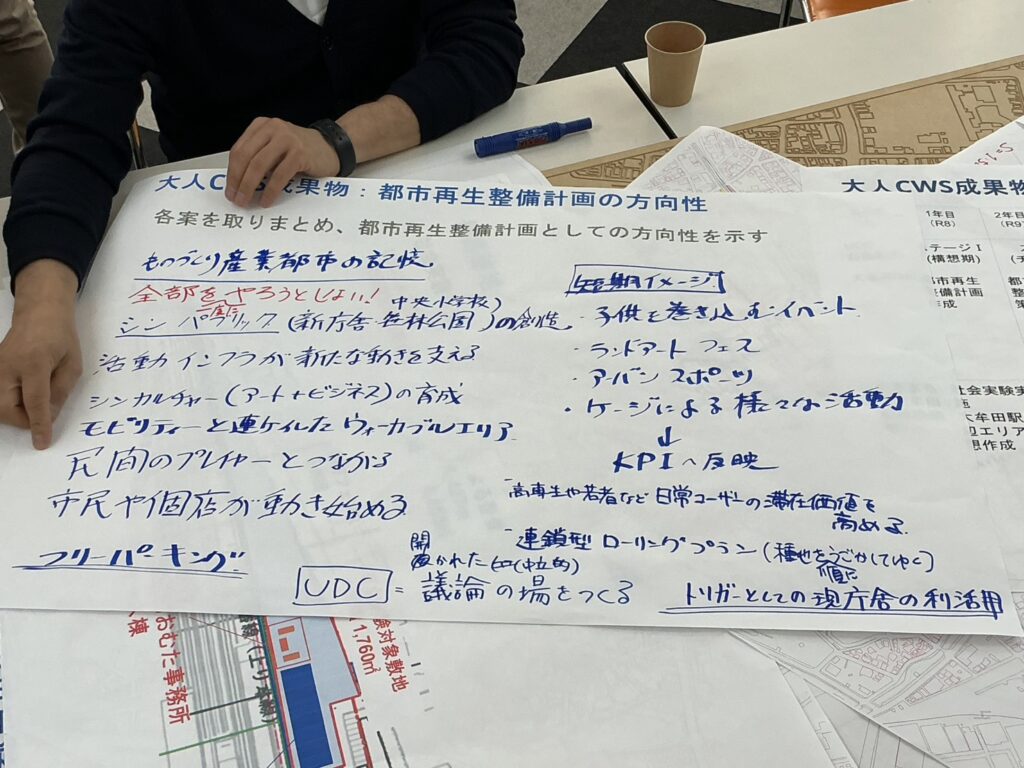 大人CWS成果物：都市再生整備計画の方向性
各案を取りまとめ、都市再生整備計画としての方向性を示す
ものづくり産業都市の記憶
全部を一度にやろうとしない！
シン パブリック (新庁舎・笹林公園 中央小学校)の創造
活動インフラが新たな動きを支える
シンカルチャー (アート+ビジネス)の育成
モビリティーと連ケイしたウォーカブルエリア
民間のプレイヤーとつながる
市民や個店が動き始める
フリーパーキング
短期イメージ
・子供を巻き込むイベント
・ランドアートフェス
・アーバンスポーツ
・ケージによる様々な活動
↓
KPIへ反映
高専生や若者など日常ユーザーの滞在価値を高める
連鎖型ローリングプラン (種地をうごかしてゆく) 順に
UDC = 開かれた (中立的) 議論の場をつくる
トリガーとしての現庁舎の利活用
大人CWS成果物
1年目
(R8)
2年目
(R9
テージⅠ
(構想期)
市再生
整備計画
成
社会実験実
大牟田駅
辺エリア
想作成
おむた事務所
棟
対象敷地
1,760㎡